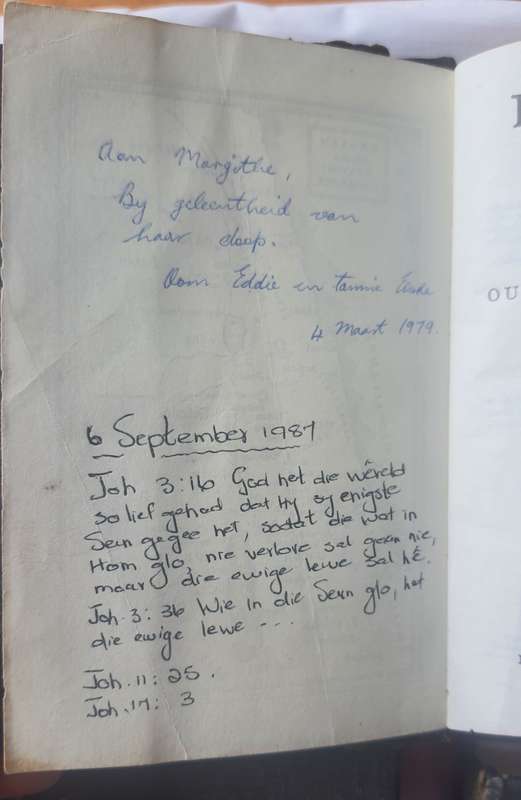 Aan Margithe,
By geleentheid van
haar doop.
Oom Eddie en Tannie
4 Maart 1979.
6 September 1987
Joh 3:16 God het die wêreld
so lief gehad dat Hy sy enigste
Seun gegee het, sodat die wat in
Hom glo, nie verlore sal gaan nie,
maar die ewige lewe sal hê.
Joh. 3: 36 Wie in die Seun glo, het
die ewige lewe ---
Joh. 11: 25.
Joh. 17: 3
OU